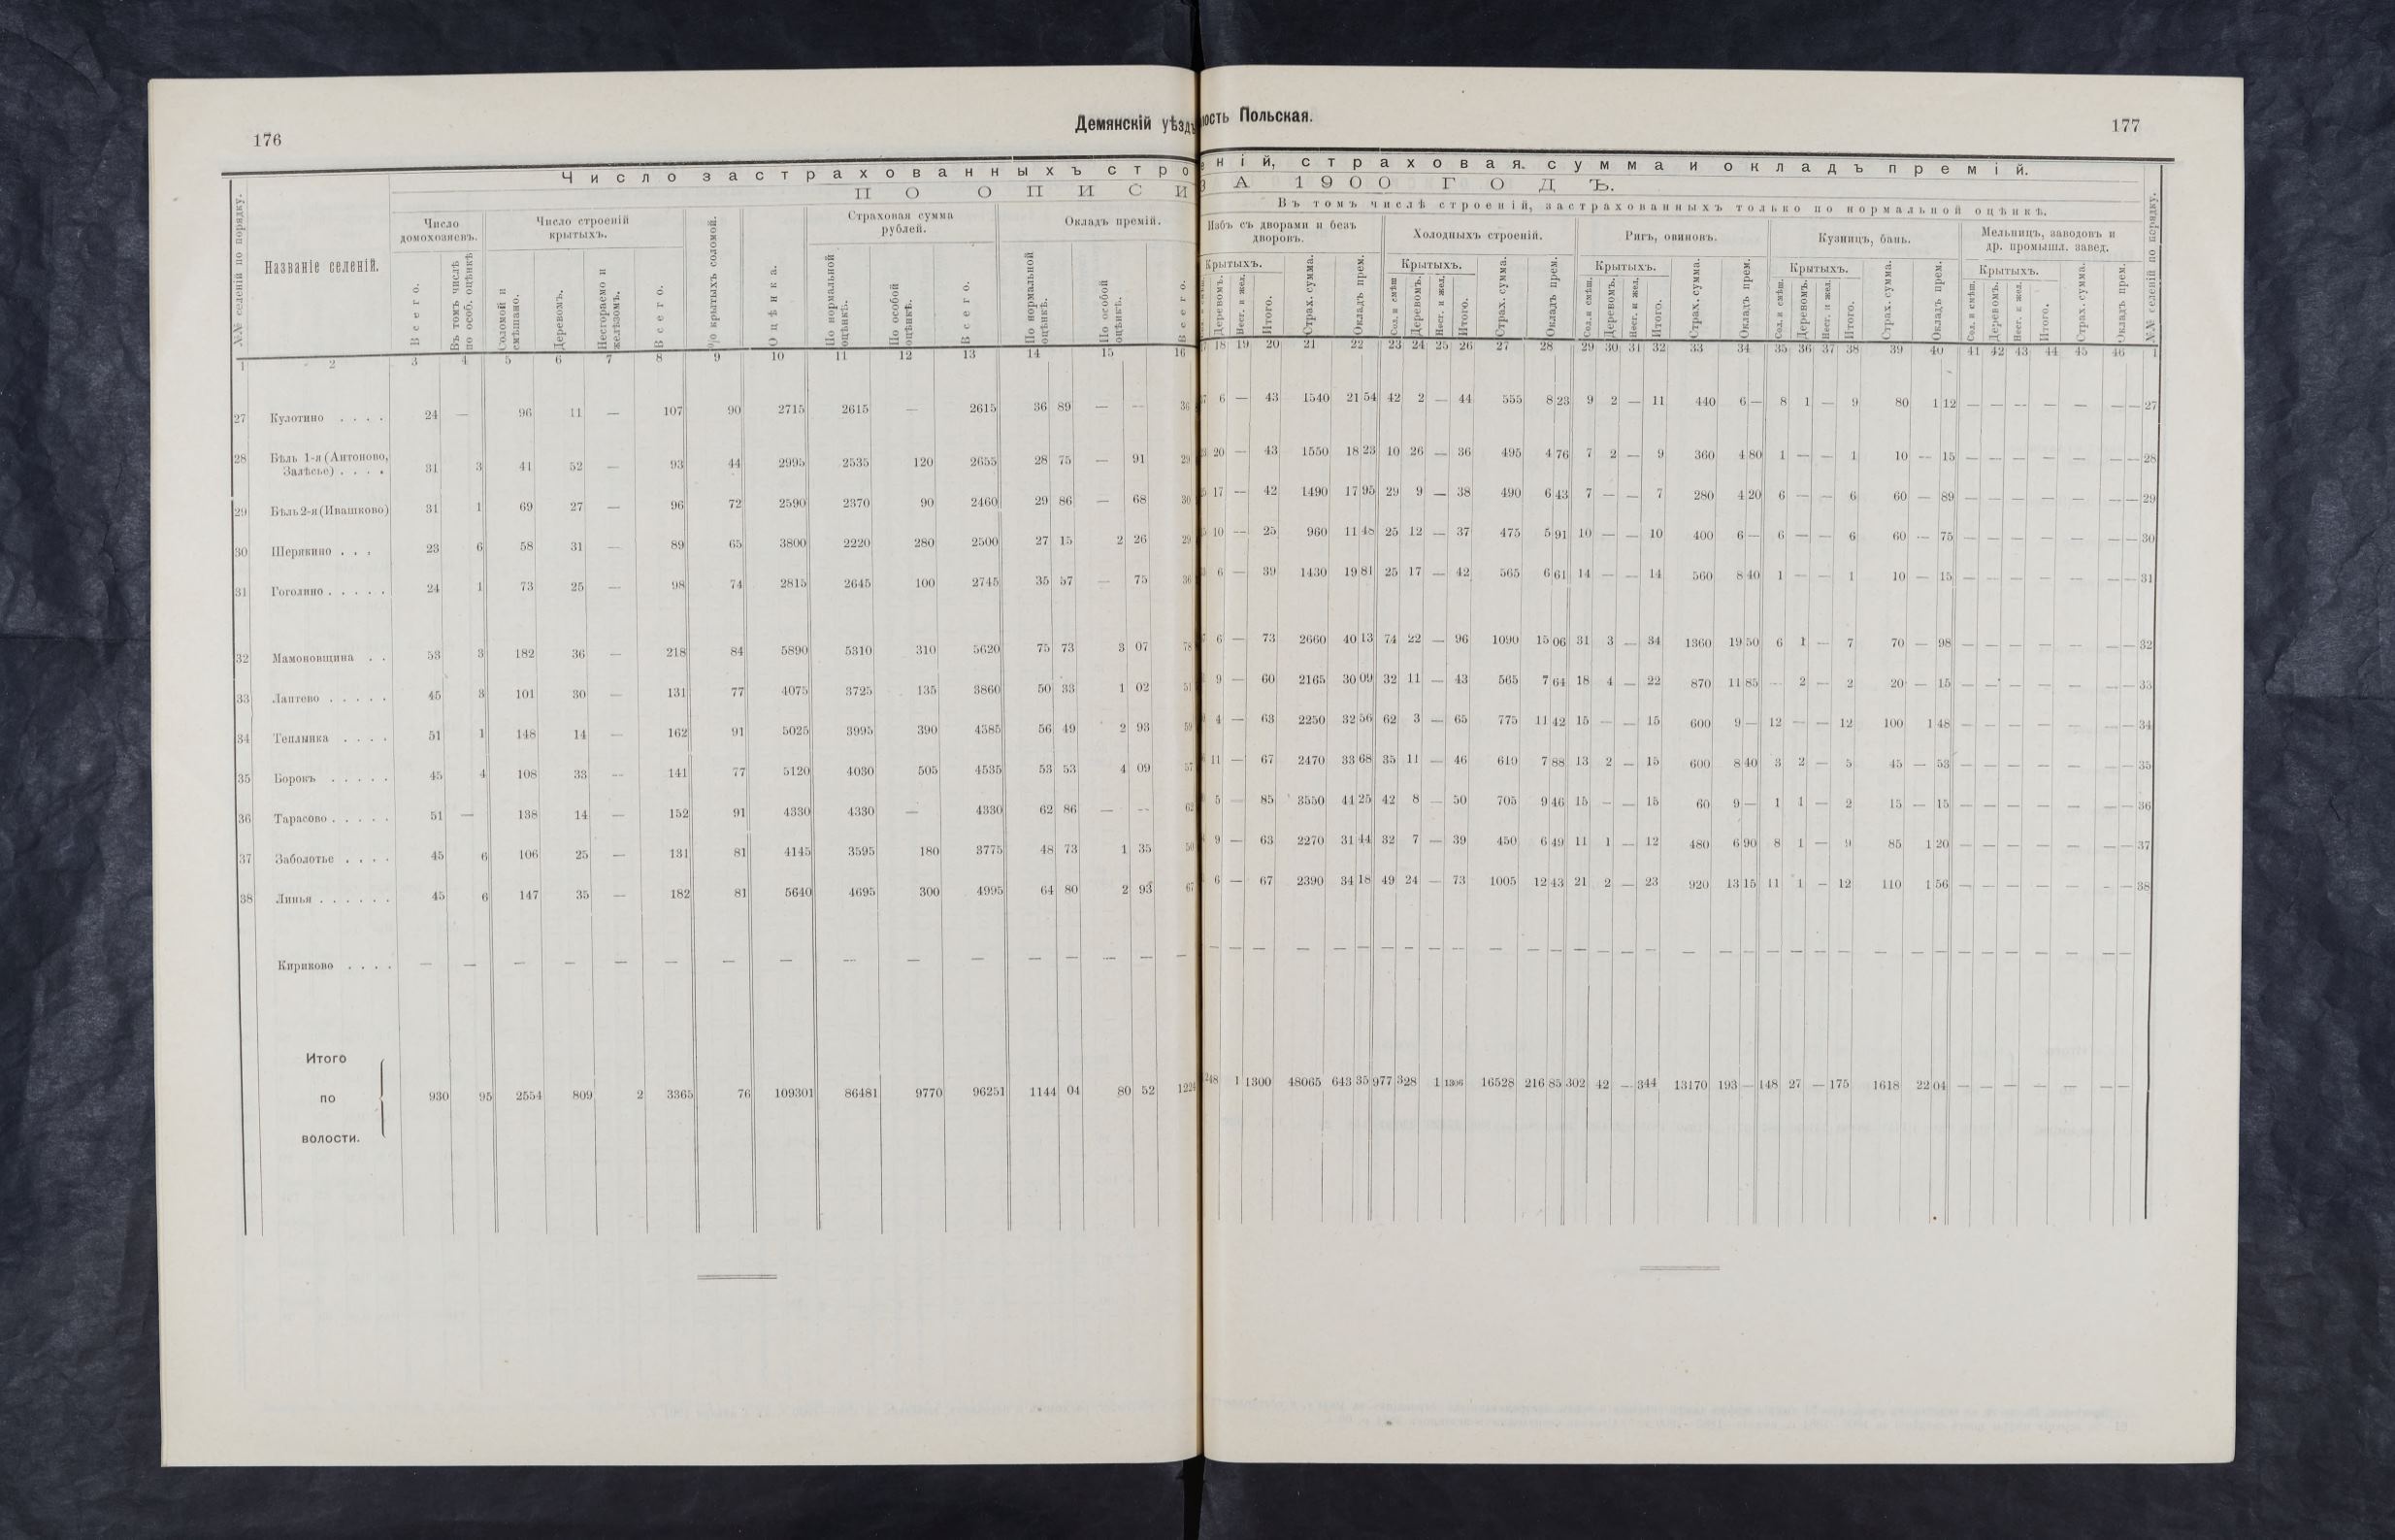 176
Демянскій уѣздъ
ость Польская.
177
Число застрахованныхъ стро
еній, страховая сумма и окладъ премій.
ПО ОПИСИ
ЗА 1900 ГОДЪ.
Въ томъ числѣ строеній, застрахованныхъ только по нормальной оцѣнкѣ.
№№ селеній по порядку.
Названіе селеній.
Число домохозяевъ.
Число строеній крытыхъ.
% крытыхъ соломой.
Оцѣнка.
Страховая сумма рублей.
Окладъ премій.
Избъ съ дворами и безъ дворовъ.
Холодныхъ строеній.
Ригъ, овиновъ.
Кузницъ, бань.
Мельницъ, заводовъ и др. промышл. завед.
№№ селеній по порядку.
Всего.
Въ томъ числѣ по особ. оцѣнкѣ
Соломой и смѣшано.
Деревомъ.
Несгораемо и желѣзомъ.
Всего.
По нормальной оцѣнкѣ.
По особой оцѣнкѣ.
Всего.
По нормальной оцѣнкѣ.
По особой оцѣнкѣ.
Всего.
Крытыхъ.
Деревомъ. Несг. и жел. Итого. Страх. сумма. Окладъ прем.
Крытыхъ.
Сол. и смѣш. Деревомъ. Несг. и жел. Итого. Страх. сумма. Окладъ прем.
Крытыхъ.
Сол. и смѣш. Деревомъ. Несг. и жел. Итого. Страх. сумма. Окладъ прем.
Крытыхъ.
Сол. и смѣш. Деревомъ. Несг. и жел. Итого. Страх. сумма. Окладъ прем.
Крытыхъ.
Сол. и смѣш. Деревомъ. Несг. и жел. Итого. Страх. сумма. Окладъ прем.
1 2 3 4 5 6 7 8 9 10 11 12 13 14 15 16 18 19 20 21 22 23 24 25 26 27 28 29 30 31 32 33 34 35 36 37 38 39 40 41 42 43 44 45 46 1
27 Кулотино . . . . 24 — 96 11 — 107 90 2715 2615 — 2615 36 89 — — 36 7 6 — 43 1540 21 54 42 2 — 44 555 8 23 9 2 — 11 440 6 — 8 1 — 9 80 1 12 — — — — — — — 27
28 Бѣль 1-я (Антоново,
Залѣсье) . . . . 31 3 41 52 — 93 44 2995 2535 120 2655 28 75 — 91 29 20 — 43 1550 18 23 10 26 — 36 495 4 76 7 2 — 9 360 4 80 1 — — 1 10 — 15 — — — — — — — 28
29 Бѣль 2-я (Ивашково) 31 1 69 27 — 96 72 2590 2370 90 2460 29 86 — 68 30 17 — 42 1490 17 95 29 9 — 38 490 6 43 7 — — 7 280 4 20 6 — — 6 60 — 89 — — — — — — — 29
30 Шерякино . . . 23 6 58 31 — 89 65 3800 2220 280 2500 27 15 2 26 29 10 — 25 960 11 48 25 12 — 37 475 5 91 10 — — 10 400 6 — 6 — — 6 60 — 75 — — — — — — — 30
31 Гоголино . . . . . 24 1 73 25 — 98 74 2815 2645 100 2745 35 57 — 75 36 6 — 39 1430 19 81 25 17 — 42 565 6 61 14 — — 14 560 8 40 1 — — 1 10 — 15 — — — — — — — 31
32 Мамоновщина . . 53 3 182 36 — 218 84 5890 5310 310 5620 75 73 3 07 78 6 — 73 2660 40 13 74 22 — 96 1090 15 06 31 3 — 34 1360 19 50 6 1 — 7 70 — 98 — — — — — — — 32
33 Лаптево . . . . . 45 3 101 30 — 131 77 4075 3725 135 3860 50 33 1 02 51 9 — 60 2165 30 09 32 11 — 43 565 7 64 18 4 — 22 870 11 85 — 2 — 2 20 — 15 — — — — — — — 33
34 Теплынка . . . . 51 1 148 14 — 162 91 5025 3995 390 4385 56 49 2 93 59 4 — 63 2250 32 56 62 3 — 65 775 11 42 15 — — 15 600 9 — 12 — — 12 100 1 48 — — — — — — — 34
35 Борокъ . . . . . 45 4 108 33 — 141 77 5120 4030 505 4535 53 53 4 09 57 11 — 67 2470 33 68 35 11 — 46 610 7 88 13 2 — 15 600 8 40 3 2 — 5 45 — 53 — — — — — — — 35
36 Тарасово . . . . . 51 — 138 14 — 152 91 4330 4330 — 4330 62 86 — — 62 5 — 85 3550 44 25 42 8 — 50 705 9 46 15 — — 15 60 9 — 1 1 — 2 15 — 15 — — — — — — — 36
37 Заболотье . . . . 45 6 106 25 — 131 81 4145 3595 180 3775 48 73 1 35 50 9 — 63 2270 31 44 32 7 — 39 450 6 49 11 1 — 12 480 6 90 8 1 — 9 85 1 20 — — — — — — — 37
38 Линья . . . . . . 45 6 147 35 — 182 81 5640 4695 300 4995 64 80 2 93 67 6 — 67 2390 34 18 49 24 — 73 1005 12 43 21 2 — 23 920 13 15 11 1 — 12 110 1 56 — — — — — — — 38
Кириково . . . . — — — — — — — — — — — — — — — — — — — — — — — — — — — — — — — — — — — — — — — — — — — — — — — — — — —
Итого
по
волости. 930 95 2554 809 2 3365 76 109301 86481 9770 96251 1144 04 80 52 1224 248 1 1300 48065 643 35 977 328 1 1306 16528 216 85 302 42 — 344 13170 193 — 148 27 — 175 1618 22 04 — — — — — — —